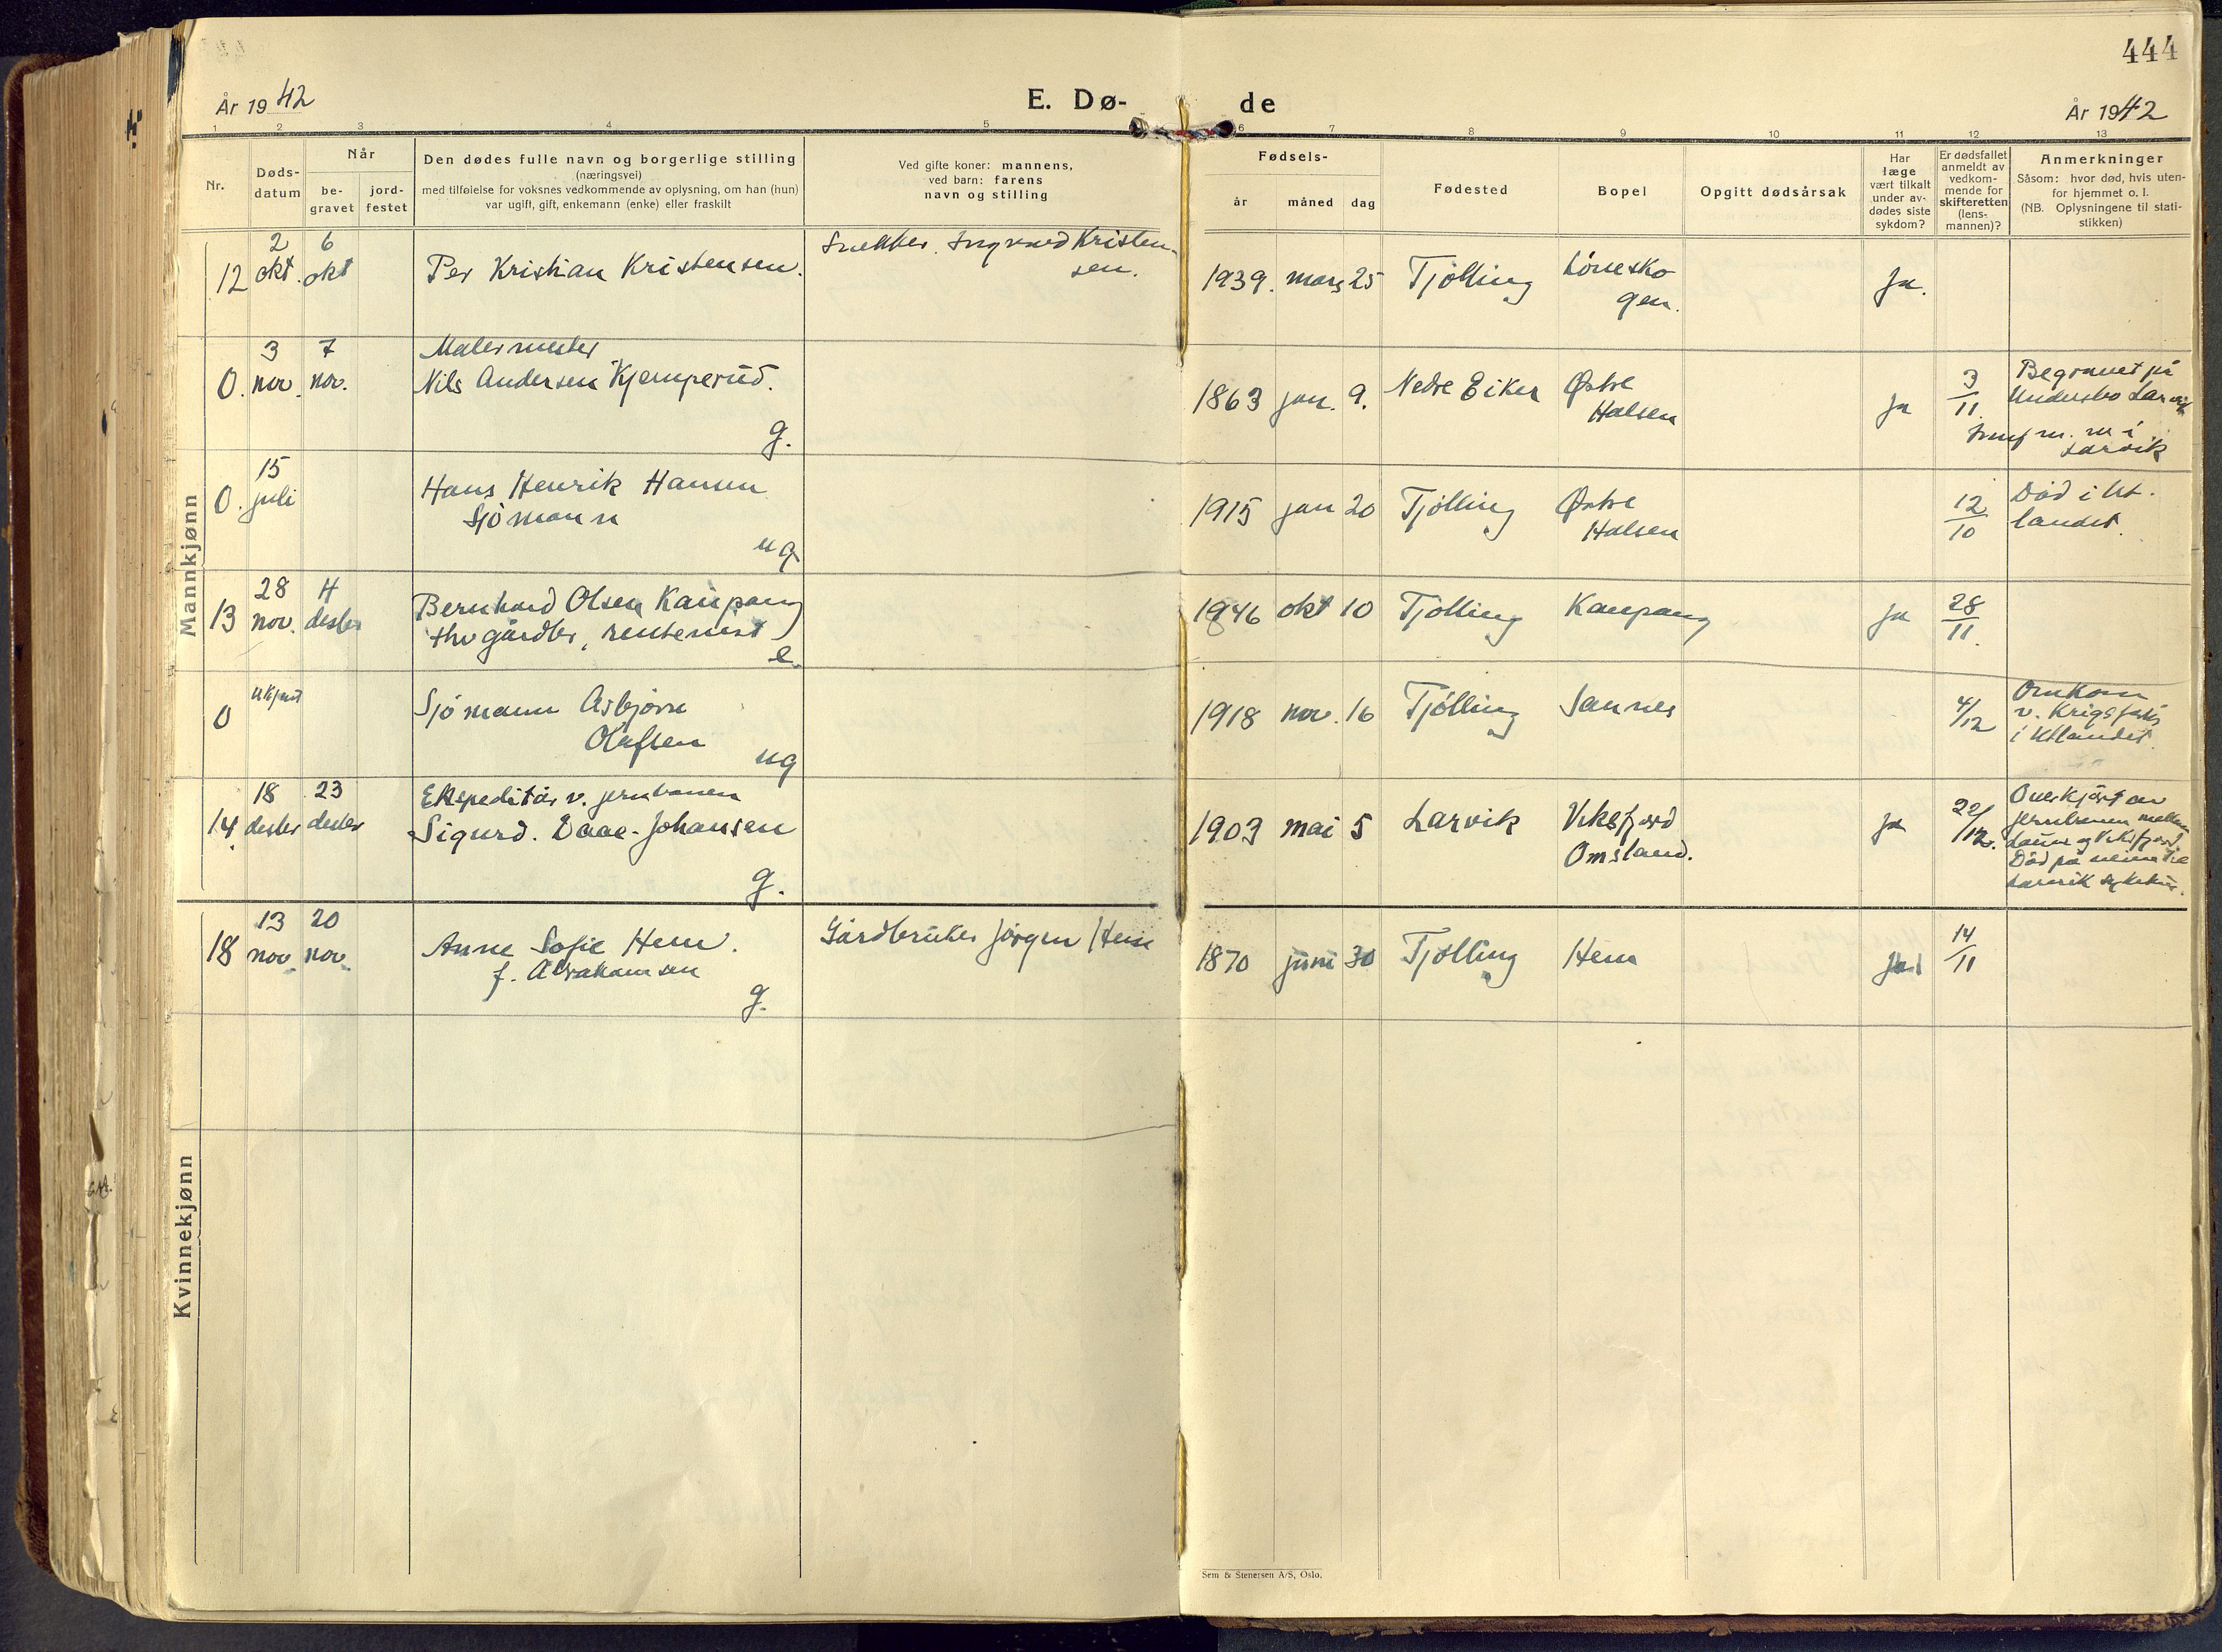 444
År 1942
E. Dø-
de
År 1942
1 2 3 4 5 6 7 8 9 10 11 12 13
Nr.
Døds-
datum
Når
be-
gravet
jord-
festet
Den dødes fulle navn og borgerlige stilling
(næringsvei)
med tilføielse for voksnes vedkommende av oplysning, om han (hun)
var ugift, gift, enkemann (enke) eller fraskilt
Ved gifte koner: mannens,
ved barn: farens
navn og stilling
Fødsels-
år måned dag
Fødested
Bopel
Opgitt dødsårsak
Har
læge
vært tilkalt
under av-
dødes siste
sykdom?
Er dødsfallet
anmeldt av
vedkom-
mende for
skifteretten
(lens-
mannen)?
Anmerkninger
Såsom: hvor død, hvis uten-
for hjemmet o. l.
(NB. Oplysningene til stati-
stikken)
Mannkjønn
12
2
okt.
6
okt
Per Kristian Kristensen.
Snekker Ingvard Kristen-
sen.
1939. mars 25 Tjølling
Løvesko
gen.
Ja.
0.
3
nov.
7
nov.
Malermester
Nils Andersen Kjemperud.
g.
1863 jan. 9. Nedre Eiker
Østre
Halsen
ja
3
11
Begravet på
Undersbo Larvik
i
Larvik
0.
15
juli
Hans Henrik Hansen
Sjømann
ug
1915 jan 20 Tjølling
Østre
Halsen
12
10
Død i ut-
landet.
13
28
nov.
4
desbr
Bernhard Olsen Kaupang
fhv gårdbr, rentenist
e.
1946 okt 10 Tjølling Kaupang
ja
28
11.
0
ukjent
Sjømann Asbjørn
Olafsen
ug
1918 nov. 16 Tjølling Sannes
4/12
Omkom
v. Krigsforlis
i Utlandet.
14
18
desbr
23
desbr
Ekspeditør v. jernbanen
Sigurd. Daae-Johansen
g.
1903 mai 5 Larvik
Viksfjord
Omsland.
ja
22/12.
Overkjørt av
jernbanen mellem
Lauve og Viksfjord.
Død på veien til
Larvik sykehus.
Kvinnekjønn
18
13
nov.
20
nov.
Anne Sofie Hem.
f. Abrahamsen
g.
Gårdbruker Jørgen Hem
1870 juni 30 Tjølling Hem
ja
14
11
Sem & Stenersen A/S, Oslo.